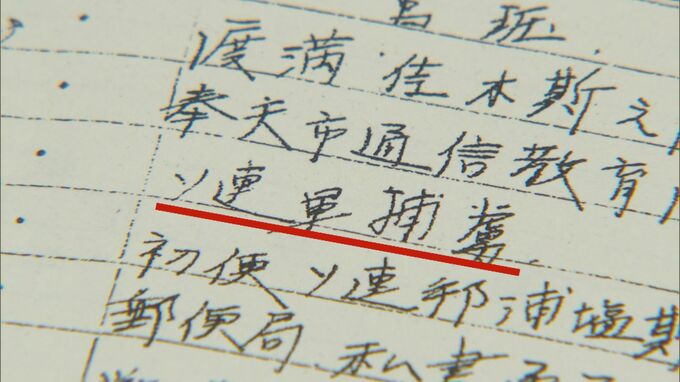 渡満 佳木斯
奉天市通信教育
ソ連軍捕虜
初便 ソ連邦浦塩斯
郵便局 私書